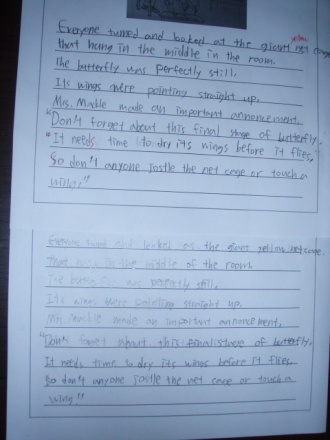 Everyone turned and looked at the giant yellow net cage
that hung in the middle in the room.
The butterfly was perfectly still.
Its wings were pointing straight up.
Mrs. Mackle made an important announcement.
"Don't forget about this final stage of butterfly.
"It needs time to dry its wings before it flies,"
So don't anyone jostle the net cage or touch a
wing."
and looked at the giant yellow net cage.
That in the middle of the room
The perfectly still.
Its wings were pointing straight up.
Mrs. made an important annoncement.
"Don't forget about this final stage of butterfly.
It needs time to dry its wings before it flies.
So don't anyone jostle the net cage or touch a
wing"